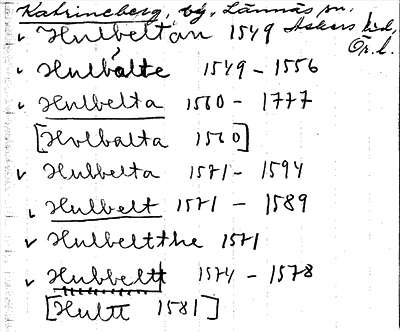 Katrineberg, by, Lännäs sn,
Askers hd,
Ör. l.
Hulbeltan 1549
Hulbålte 1549 - 1556
Hulbelta 1560 - 1777
[Hvlbalta 1560]
Hulbelta 1571 - 1594
Hulbelt 1571 - 1589
Hulbeltthe 1571
Hubbeltt 1574 - 1578
[Hultt 1581]